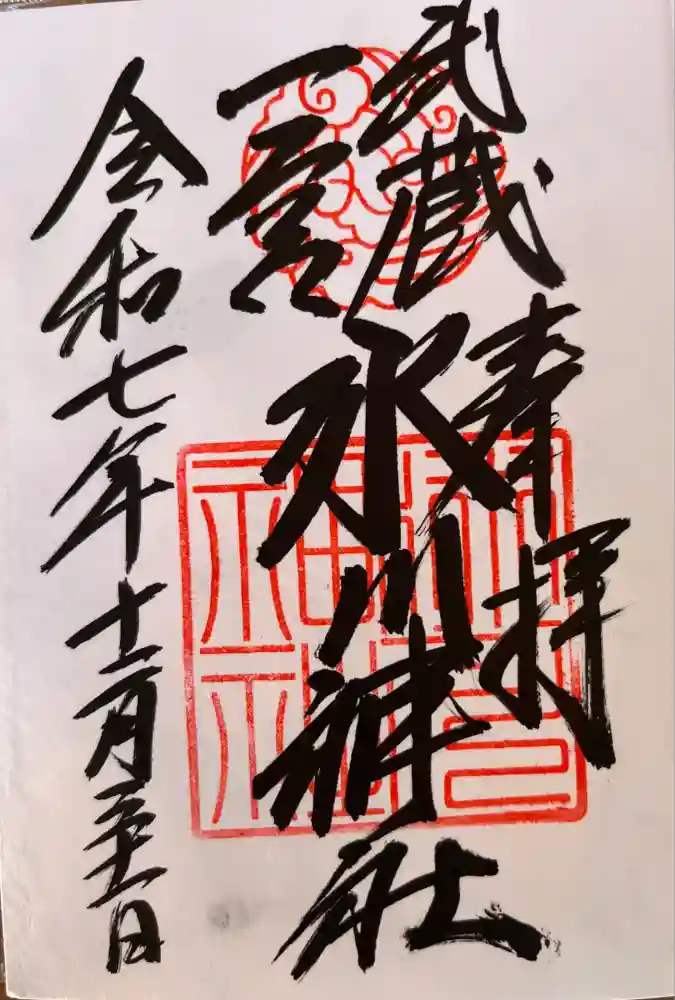 奉拝
武蔵
一宮
氷川神社
令和七年十二月二十一日